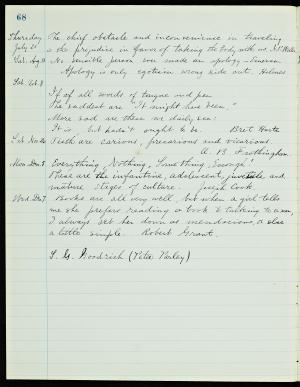 68
Thursday The chief obstacle and inconvenience in traveling
July 21 is the prejudice in favor of taking the body with us.
No sensible person ever made an apology — Emerson
Apology is only egotism wrong side out. Holmes
If of all words of tongue and pen
The saddest are "It might have been,"
More sad are these we daily see:
It is, but hadn't ought to be. Bret Harte
Teeth are carious, precarious and vicarious.
A. B. Frothingham.
Everything, Nothing, Something, Enough!
These are the infantine, adolescent, juvenile and
mature stages of culture. Joseph Cook.
Books are all very well, but when a girl tells
me she prefers reading a book to talking to a man,
I always set her down as mendacious, or else
a little simple. Robert Grant.
S. G. Goodrich (Peter Parley)